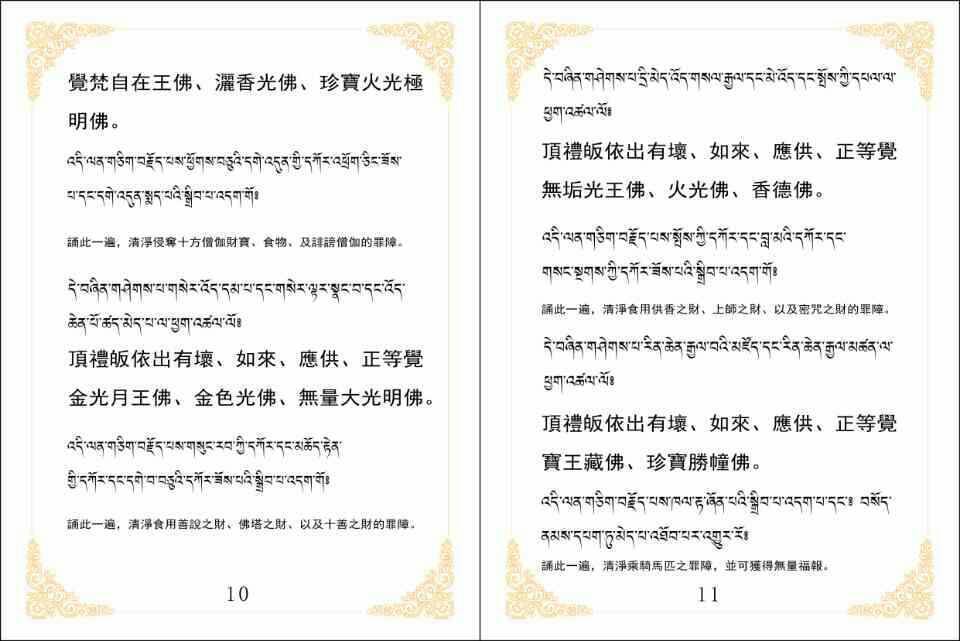 覺梵自在王佛、灑香光佛、珍寶火光極
明佛。
འདི་ལན་གཅིག་བརྗོད་པས་ཕྱོགས་བཅུའི་དགེ་འདུན་གྱི་དཀོར་འཕྲོག་ཅིང་ཟོས་
པ་དང་དགེ་འདུན་སྨད་པའི་སྒྲིབ་པ་འདག་གོ༔
誦此一遍，清淨侵奪十方僧伽財寶、食物、及誹謗僧伽的罪障。
དེ་བཞིན་གཤེགས་པ་གསེར་འོད་དམ་པ་དང་གསེར་ལྟར་སྣང་བ་དང་འོད་
ཆེན་པོ་ཚད་མེད་པ་ལ་ཕྱག་འཚལ་ལོ༔
頂禮皈依出有壞、如來、應供、正等覺
金光月王佛、金色光佛、無量大光明佛。
འདི་ལན་གཅིག་བརྗོད་པས་གསུང་རབ་ཀྱི་དཀོར་དང་མཆོད་རྟེན་
གྱི་དཀོར་དང་དགེ་བ་བཅུའི་དཀོར་ཟོས་པའི་སྒྲིབ་པ་འདག་གོ༔
誦此一遍，清淨食用善說之財、佛塔之財、以及十善之財的罪障。
10
དེ་བཞིན་གཤེགས་པ་དྲི་མེད་འོད་གསལ་རྒྱལ་དང་མེ་འོད་དང་སྤོས་ཀྱི་དཔལ་ལ་
ཕྱག་འཚལ་ལོ༔
頂禮皈依出有壞、如來、應供、正等覺
無垢光王佛、火光佛、香德佛。
འདི་ལན་གཅིག་བརྗོད་པས་སྤོས་ཀྱི་དཀོར་དང་བླ་མའི་དཀོར་དང་
གསང་སྔགས་ཀྱི་དཀོར་ཟོས་པའི་སྒྲིབ་པ་འདག་གོ༔
誦此一遍，清淨食用供香之財、上師之財、以及密咒之財的罪障。
དེ་བཞིན་གཤེགས་པ་རིན་ཆེན་རྒྱལ་བའི་མཛོད་དང་རིན་ཆེན་རྒྱལ་མཚན་ལ་
ཕྱག་འཚལ་ལོ༔
頂禮皈依出有壞、如來、應供、正等覺
寶王藏佛、珍寶勝幢佛。
འདི་ལན་གཅིག་བརྗོད་པས་ཁལ་རྟ་ཞོན་པའི་སྒྲིབ་པ་འདག་པ་དང་༔ བསོད་
ནམས་དཔག་ཏུ་མེད་པ་འཐོབ་པར་འགྱུར་རོ༔
誦此一遍，清淨乘騎馬匹之罪障，並可獲得無量福報。
11